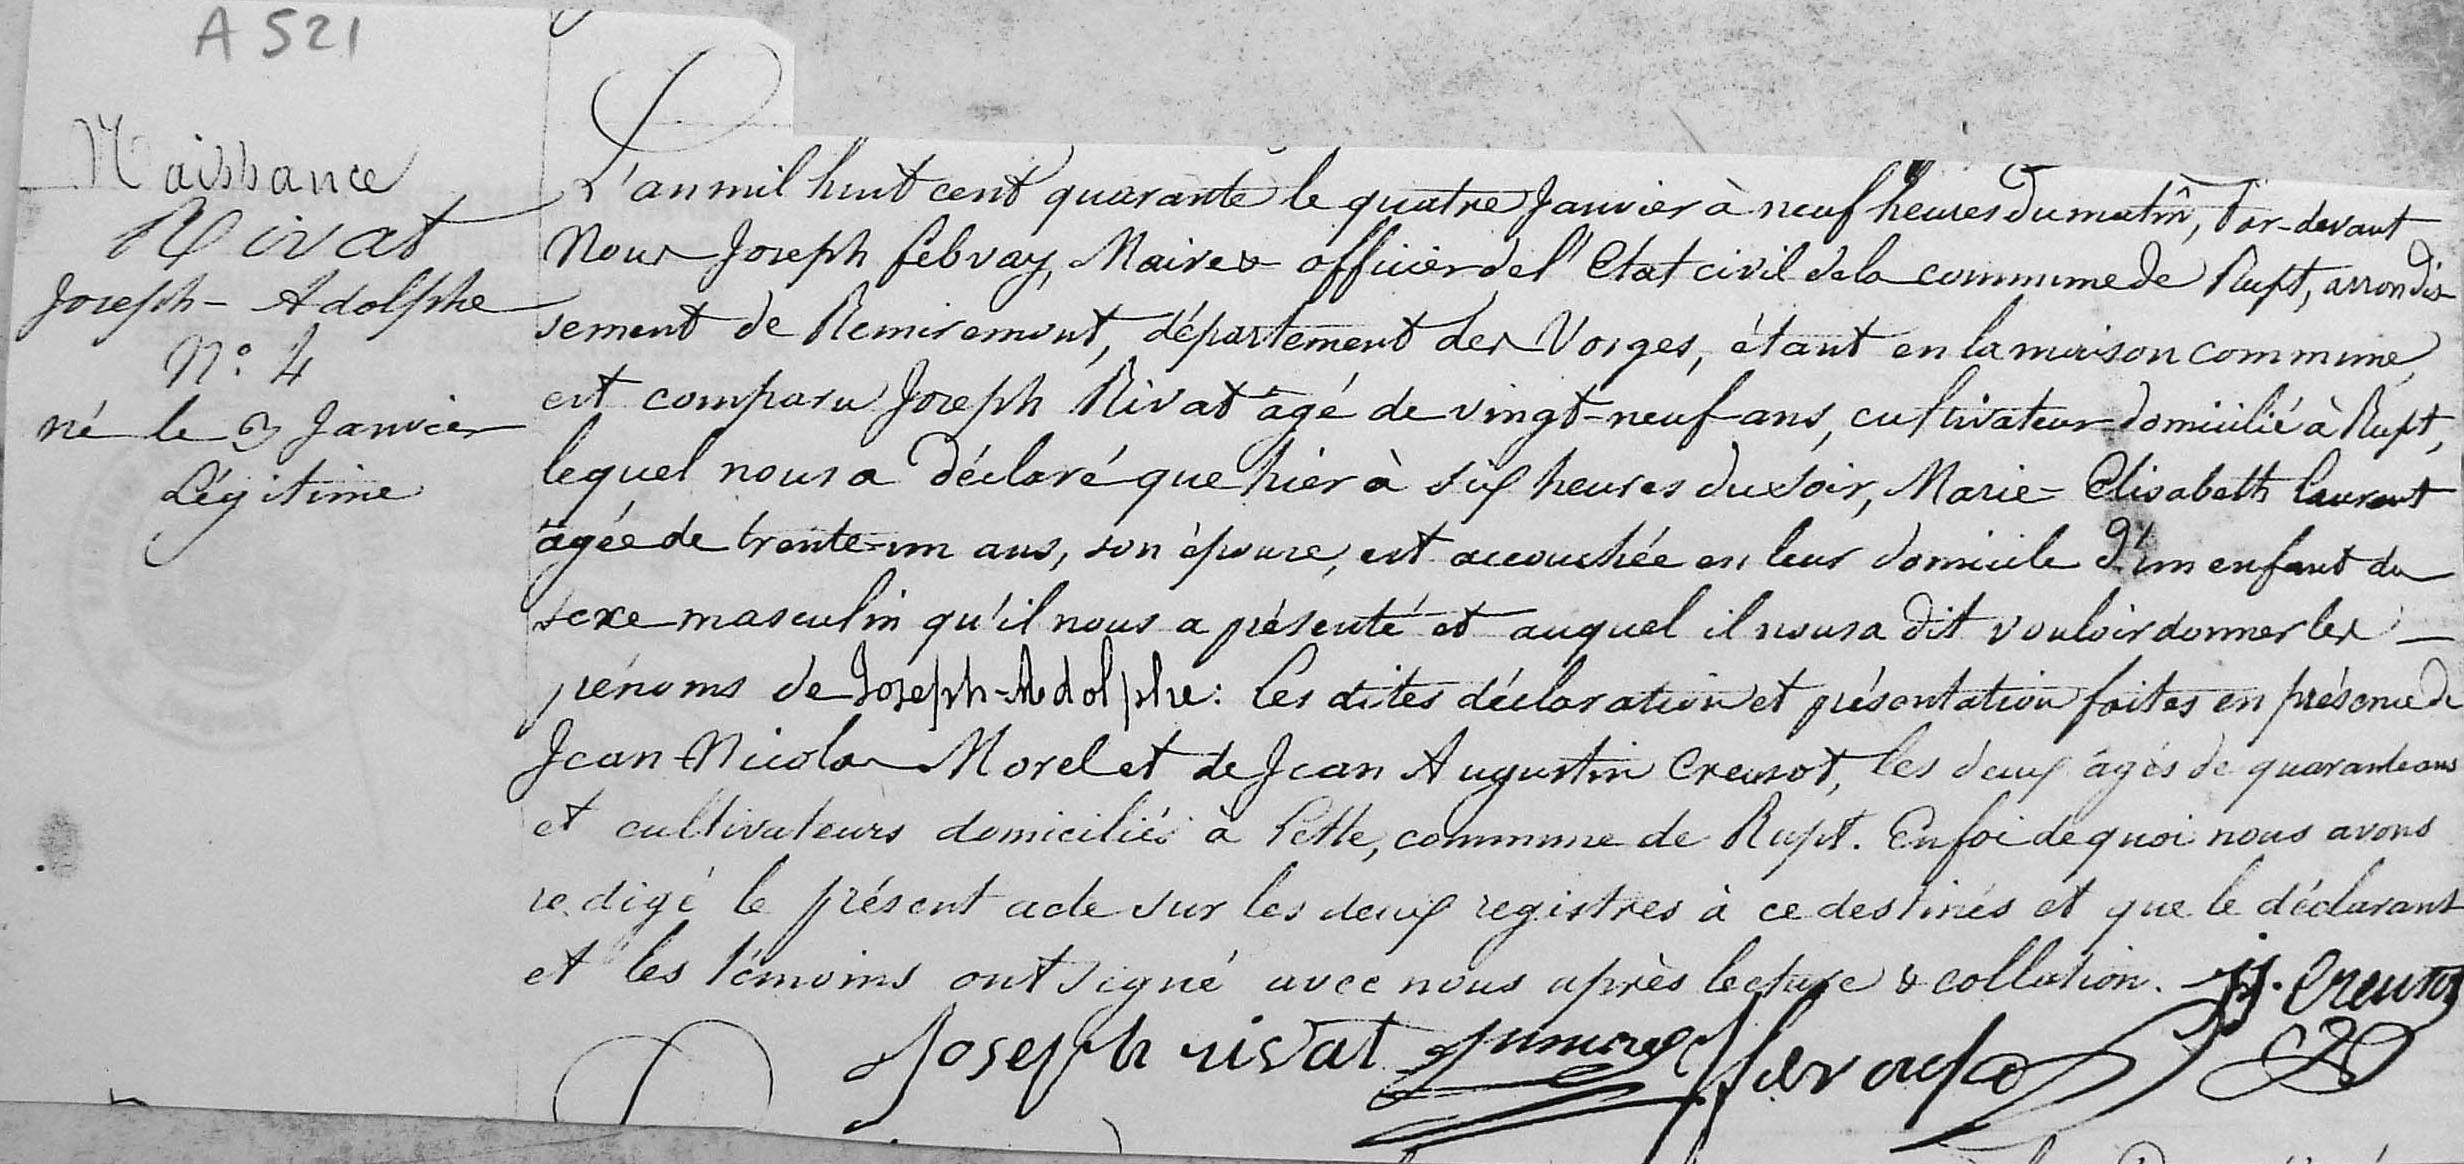 A 521
Naissance
Rivat
Joseph - Adolphe
N° 4
né le 3 Janvier
Légitime
L'an mil huit cent quarante le quatre Janvier à neuf heures du matin, Par-devant
Nous Joseph febvay, Maire & officier de l'Etat civil de la commune de Rupt, arrondis
sement de Remiremont, département des Vosges, étant en la maison commune,
est comparu Joseph Rivat âgé de vingt-neuf ans, cultivateur domicilié à Rupt,
lequel nous a déclaré que hier à six heures du soir, Marie-Elisabeth Laurent
âgée de trente-un ans, son épouse, est accouchée en leur domicile d'un enfant du
sexe masculin qu'il nous a présenté et auquel il nous a dit vouloir donner les
prénoms de Joseph-Adolphe: Les dites déclaration et présentation faites en présence de
Jean Nicolas Morel et de Jean Augustin Creusot, les deux âgés de quarante ans
et cultivateurs domiciliés à Lette, commune de Rupt. En foi de quoi nous avons
redigé le présent acte sur les deux registres à ce destinés et que le déclarant
et les témoins ont signé avec nous après lecture & collation. Creusot
Joseph rivat